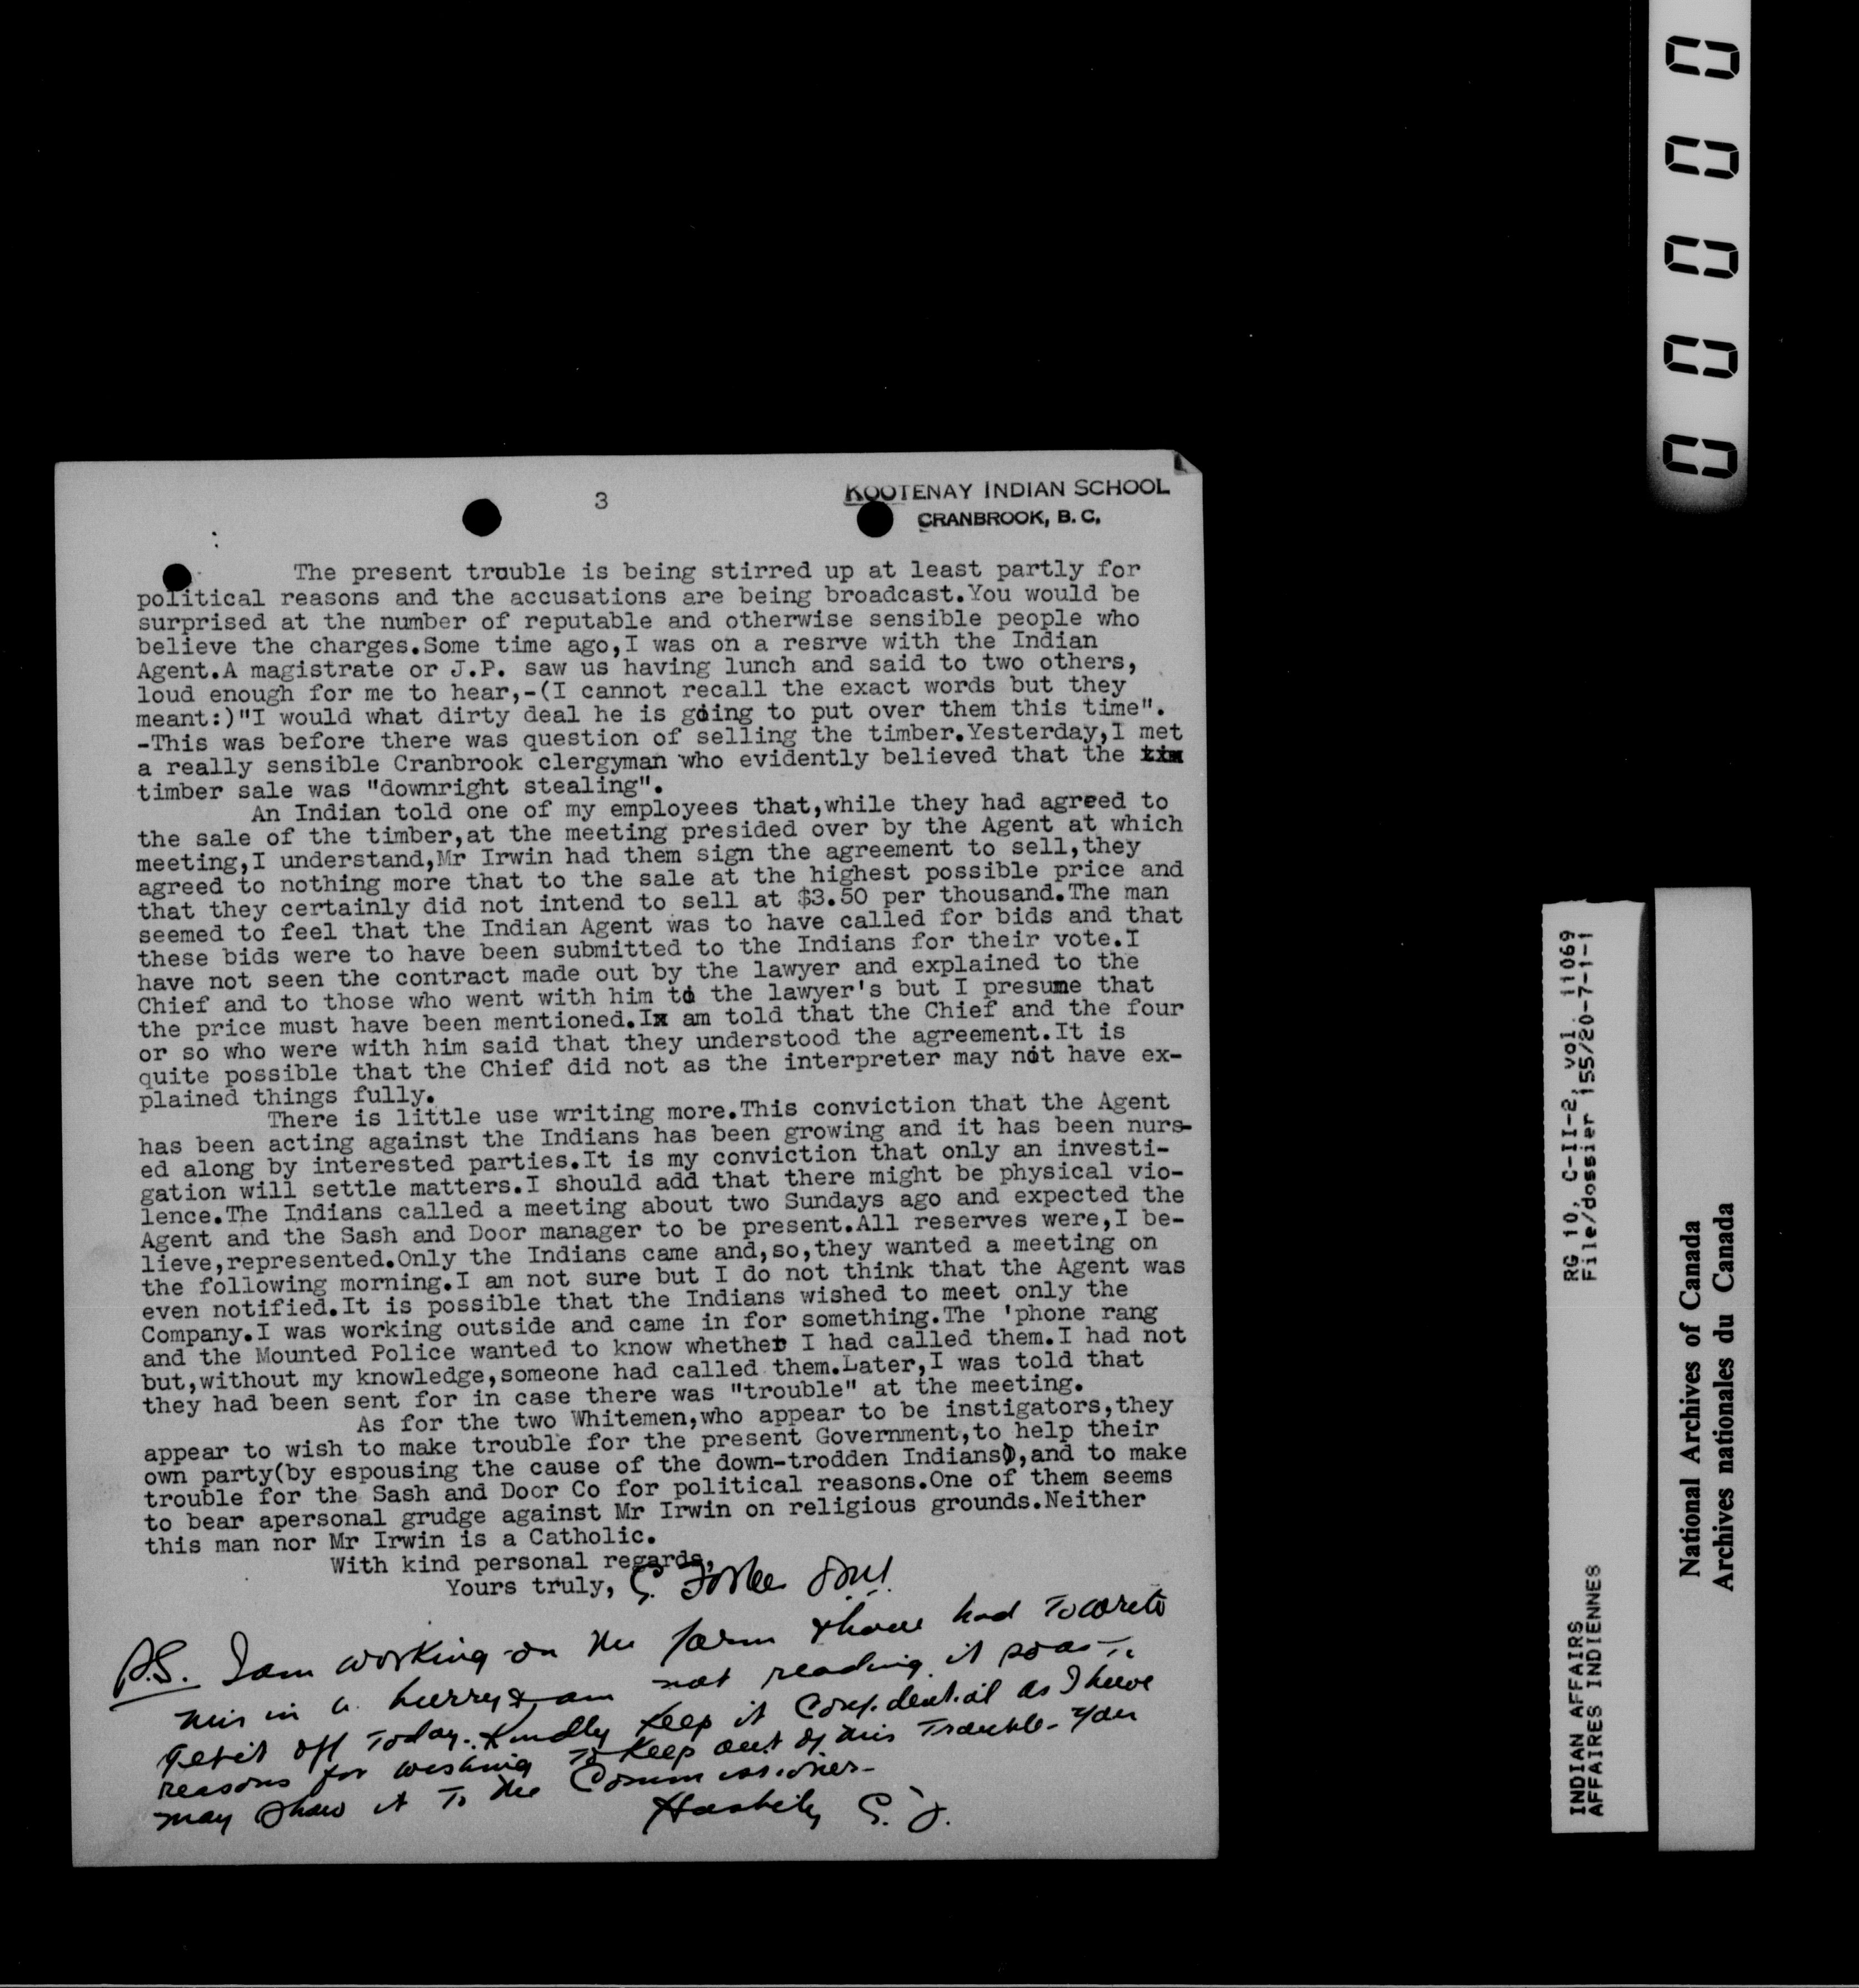 3
KOOTENAY INDIAN SCHOOL
CRANBROOK, B. C,
The present trouble is being stirred up at least partly for
political reasons and the accusations are being broadcast.You would be
surprised at the number of reputable and otherwise sensible people who
believe the charges.Some time ago,I was on a resrve with the Indian
Agent.A magistrate or J.P. saw us having lunch and said to two others,
loud enough for me to hear,-(I cannot recall the exact words but they
meant:)"I would what dirty deal he is going to put over them this time".
-This was before there was question of selling the timber.Yesterday,I met
a really sensible Cranbrook clergyman who evidently believed that the tix
timber sale was "downright stealing".
An Indian told one of my employees that,while they had agreed to
the sale of the timber,at the meeting presided over by the Agent at which
meeting,I understand,Mr Irwin had them sign the agreement to sell,they
agreed to nothing more that to the sale at the highest possible price and
that they certainly did not intend to sell at $3.50 per thousand.The man
seemed to feel that the Indian Agent was to have called for bids and that
these bids were to have been submitted to the Indians for their vote.I
have not seen the contract made out by the lawyer and explained to the
Chief and to those who went with him to the lawyer's but I presume that
the price must have been mentioned.Ix am told that the Chief and the four
or so who were with him said that they understood the agreement.It is
quite possible that the Chief did not as the interpreter may not have ex-
plained things fully.
There is little use writing more.This conviction that the Agent
has been acting against the Indians has been growing and it has been nurs-
ed along by interested parties.It is my conviction that only an investi-
gation will settle matters.I should add that there might be physical vio-
lence.The Indians called a meeting about two Sundays ago and expected the
Agent and the Sash and Door manager to be present.All reserves were,I be-
lieve,represented.Only the Indians came and,so,they wanted a meeting on
the following morning.I am not sure but I do not think that the Agent was
even notified.It is possible that the Indians wished to meet only the
Company.I was working outside and came in for something.The 'phone rang
and the Mounted Police wanted to know whether I had called them.I had not
but,without my knowledge,someone had called them.Later,I was told that
they had been sent for in case there was "trouble" at the meeting.
As for the two Whitemen,who appear to be instigators,they
appear to wish to make trouble for the present Government,to help their
own party(by espousing the cause of the down-trodden Indians),and to make
trouble for the Sash and Door Co for political reasons.One of them seems
to bear apersonal grudge against Mr Irwin on religious grounds.Neither
this man nor Mr Irwin is a Catholic.
With kind personal regards,
Yours truly,
P.S. I am working on the farm & have had to write
this in a hurry & am not reading it so as to
get it off today. Kindly keep it confidential as I have
reasons for wishing to keep out of this trouble - You
may show it to the Commissioner -
Hastily
0 0 0 0 0
RG 10, C-II-2, vol. 11069
File/dossier 155/20-7-1-1
INDIAN AFFAIRS
AFFAIRES INDIENNES
National Archives of Canada
Archives nationales du Canada